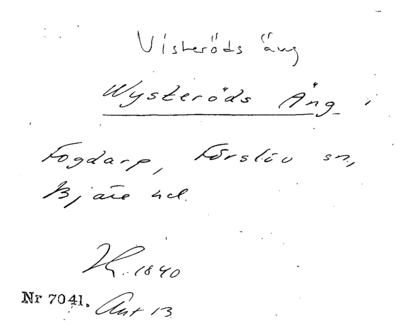 Visteröds äng
Wysteröds Äng i
Fogdarp, Förslöv sn,
Bjäre hd.
1840
Nr 7041. Ant 13